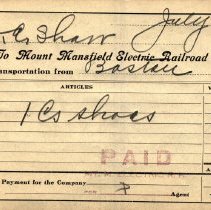 July
Shaw
To Mount Mansfield Electric Railroad
Transportation from Boston
ARTICLES
1 Cs shoes
PAID
Payment for the Company
Agent